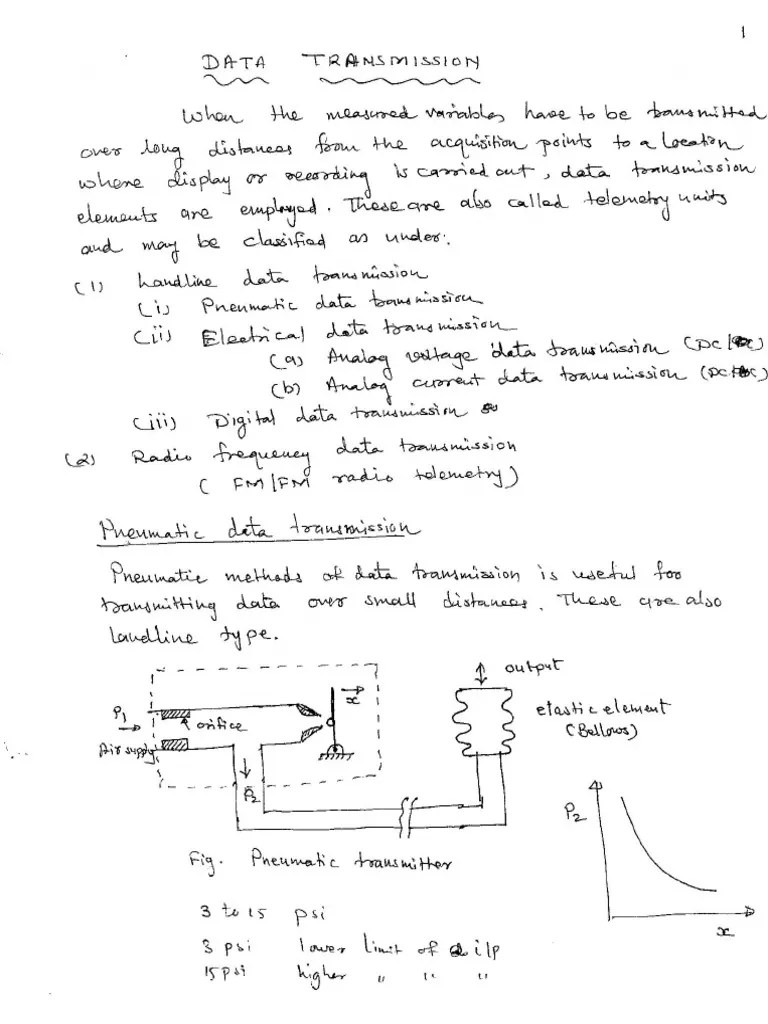 1
DATA TRANSMISSION
When the measured variables have to be transmitted
over long distances from the acquisition points to a location
where display or recording is carried out, data transmission
elements are employed. These are also called telemetry units
and may be classified as under:
(1) Landline data transmission
(i) Pneumatic data transmission
(ii) Electrical data transmission
(a) Analog voltage data transmission (DC/
(b) Analog current data transmission (DC
(iii) Digital data transmission
(2) Radio frequency data transmission
( FM/FM radio telemetry)
Pneumatic data transmission
Pneumatic methods of data transmission is useful for
transmitting data over small distances. These are also
landline type.
output
x
P1
orifice
elastic element
(Bellows)
Air supply
P2
P2
x
Fig. Pneumatic transmitter
3 to 15 psi
3 psi lower limit of i/p
15 psi higher " " "